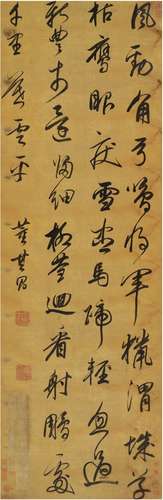 風勁角弓鳴將軍獵渭城草
枯鷹眼疾雪盡馬蹄輕忽過
新豐市還歸細柳營迴看射鵰處
千里暮雲平 董其昌